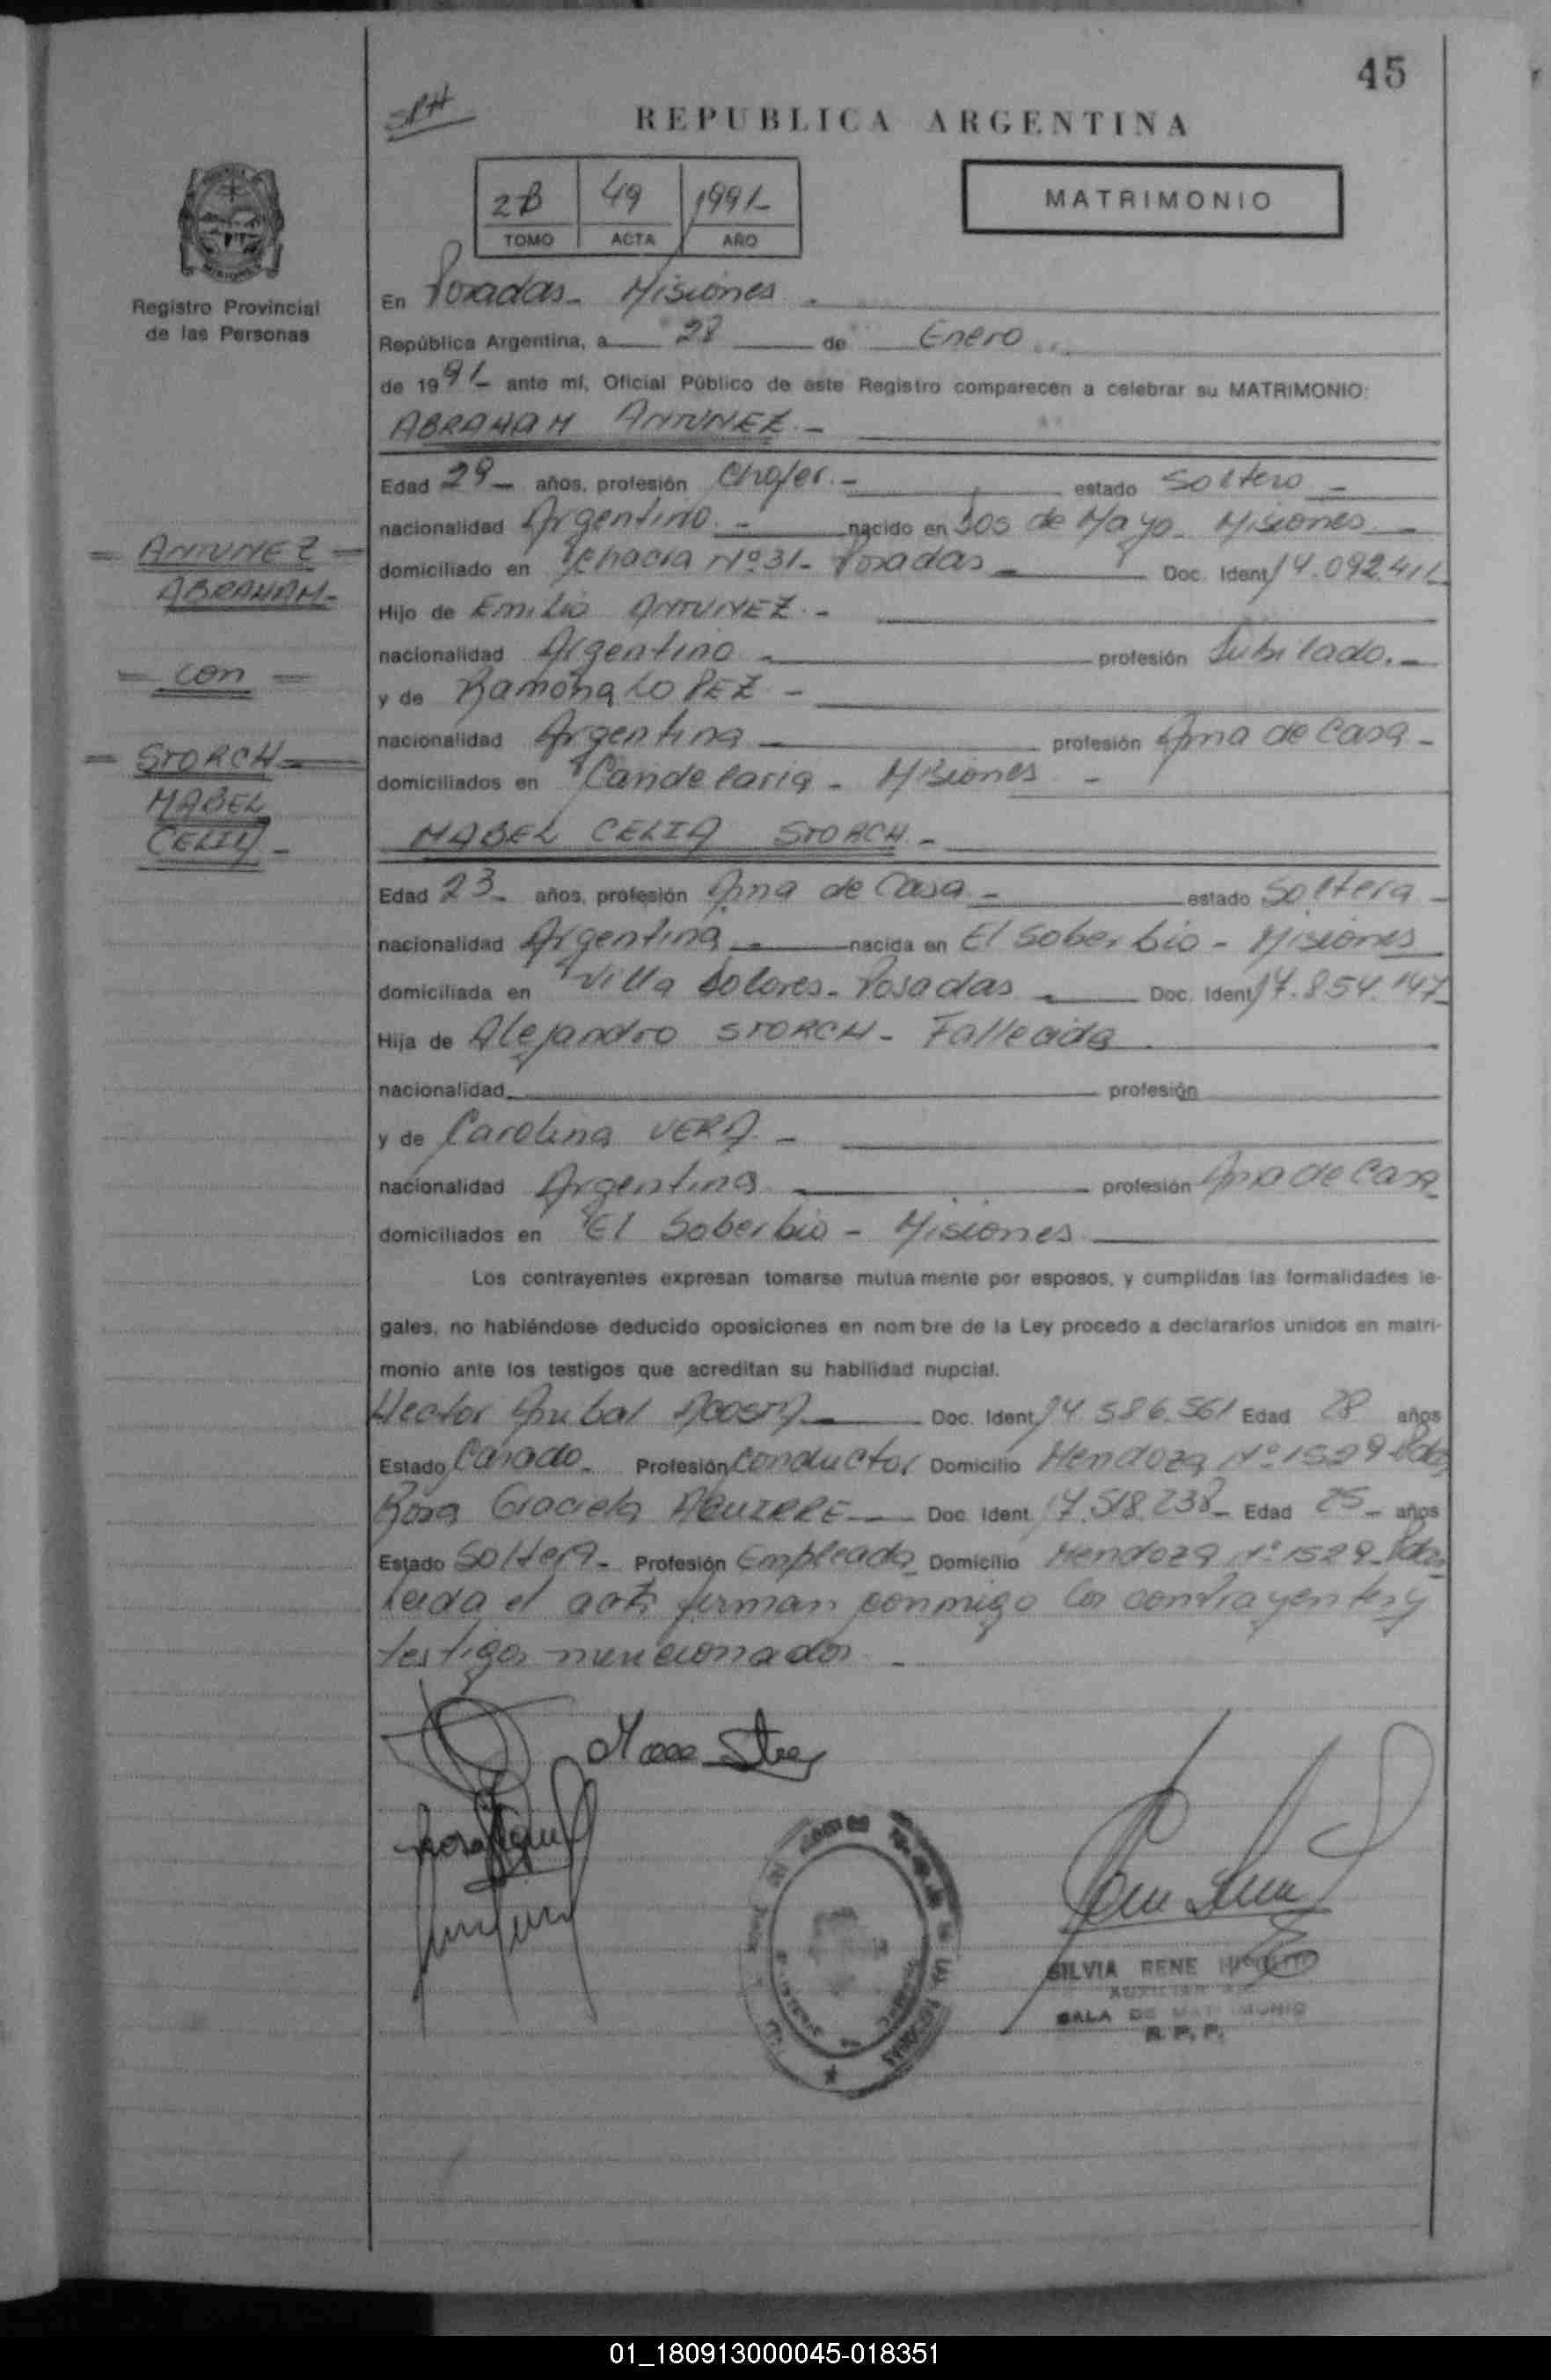 45
SRH
REPUBLICA ARGENTINA
2B 49 1991-
TOMO ACTA AÑO
MATRIMONIO
Registro Provincial
de las Personas
En Posadas- Misiones.
República Argentina, a 28 de Enero
de 1991- ante mí, Oficial Público de este Registro comparecen a celebrar su MATRIMONIO:
ABRAHAM ANTUNEZ.-
Edad 29- años, profesión Chofer.- estado Soltero-
nacionalidad Argentino.- nacido en Dos de Mayo- Misiones-
domiciliado en Chacra Nº31- Posadas- Doc. Ident 14.092.411
Hijo de Emilio ANTUNEZ.-
nacionalidad Argentino- profesión Jubilado.-
y de Ramona LOPEZ-
nacionalidad Argentina- profesión Ama de Casa-
domiciliados en Candelaria- Misiones-
= ANTUNEZ =
ABRAHAM-
= con =
= STORCH =
MABEL
CELIA-
MABEL CELIA STORCH-
Edad 23- años, profesión Ama de Casa- estado Soltera-
nacionalidad Argentina- nacida en El Soberbio- Misiones
domiciliada en Villa Dolores- Posadas- Doc. Ident 17.854.147-
Hija de Alejandro STORCH- Fallecido
nacionalidad profesión
y de Carolina VERA-
nacionalidad Argentina profesión Ama de Casa
domiciliados en El Soberbio- Misiones
Los contrayentes expresan tomarse mutua mente por esposos, y cumplidas las formalidades le-
gales, no habiéndose deducido oposiciones en nom bre de la Ley procedo a declararlos unidos en matri-
monio ante los testigos que acreditan su habilidad nupcial.
Hector Anibal ACOSTA Doc. Ident 14.586.561 Edad 28 años
Estado Casado- Profesión Conductor Domicilio Mendoza Nº1529-Pdas
Rosa Graciela AGUIRRE Doc. Ident. 17.518.238- Edad 25- años
Estado Soltera- Profesión Empleada Domicilio Mendoza Nº1529-Pdas
Leida el acta firman conmigo los contrayentes y
testigos mencionados-
SILVIA RENE
AUXILIAR
SALA DE MATRIMONIO
R. P. P.
01_180913000045-018351